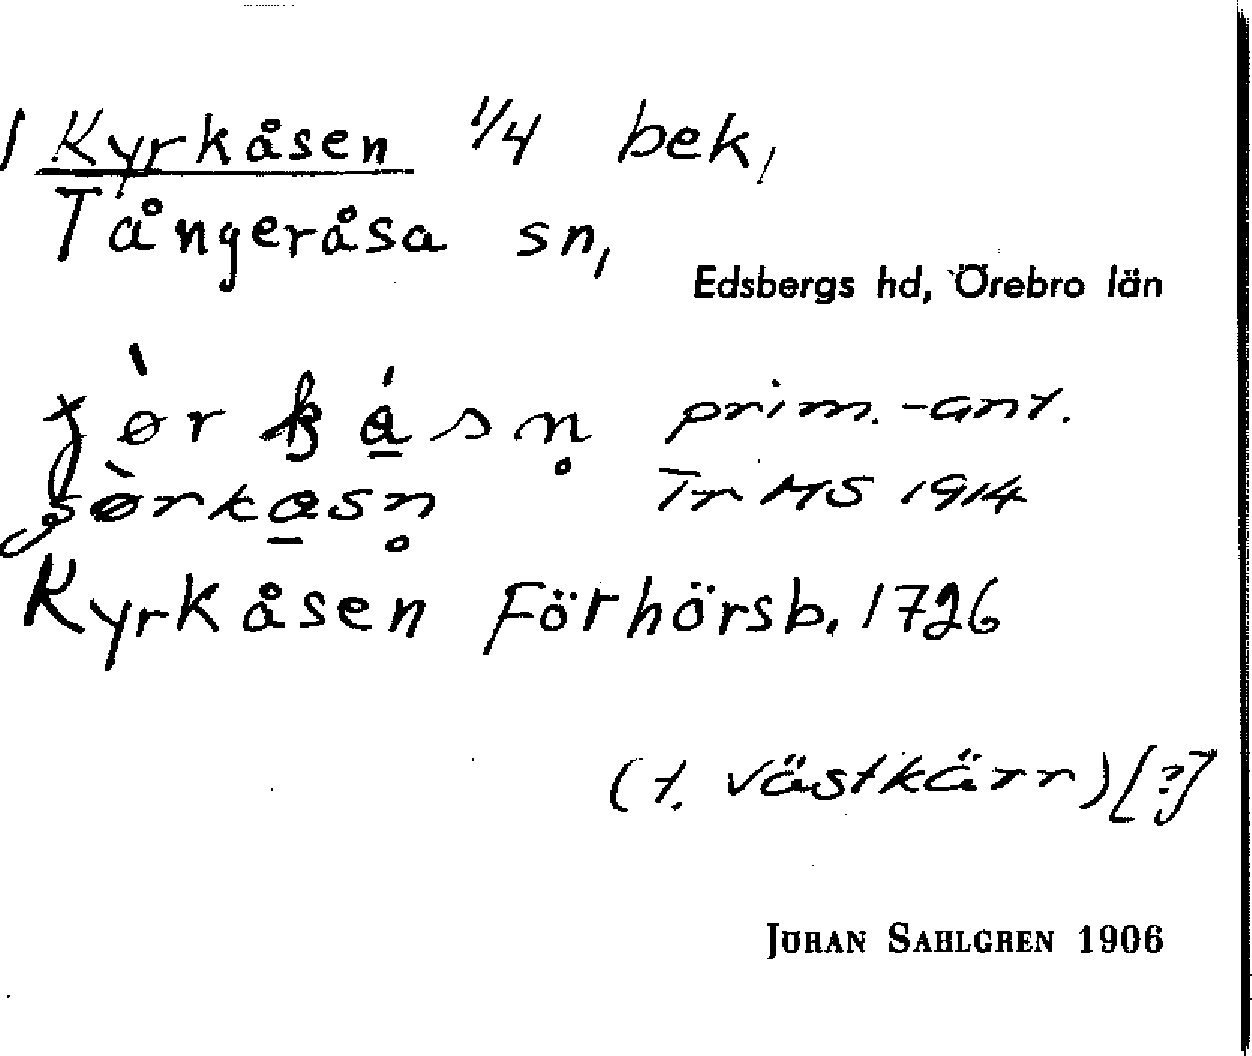 Kyrkåsen 1/4 bek,
Tångeråsa sn,
Edsbergs hd, Örebro län
prim.-ant.
Tr HS 1914
Kyrkåsen Förhörsb. 1726
(t. västkärr) [?]
JOHAN SAHLGREN 1906